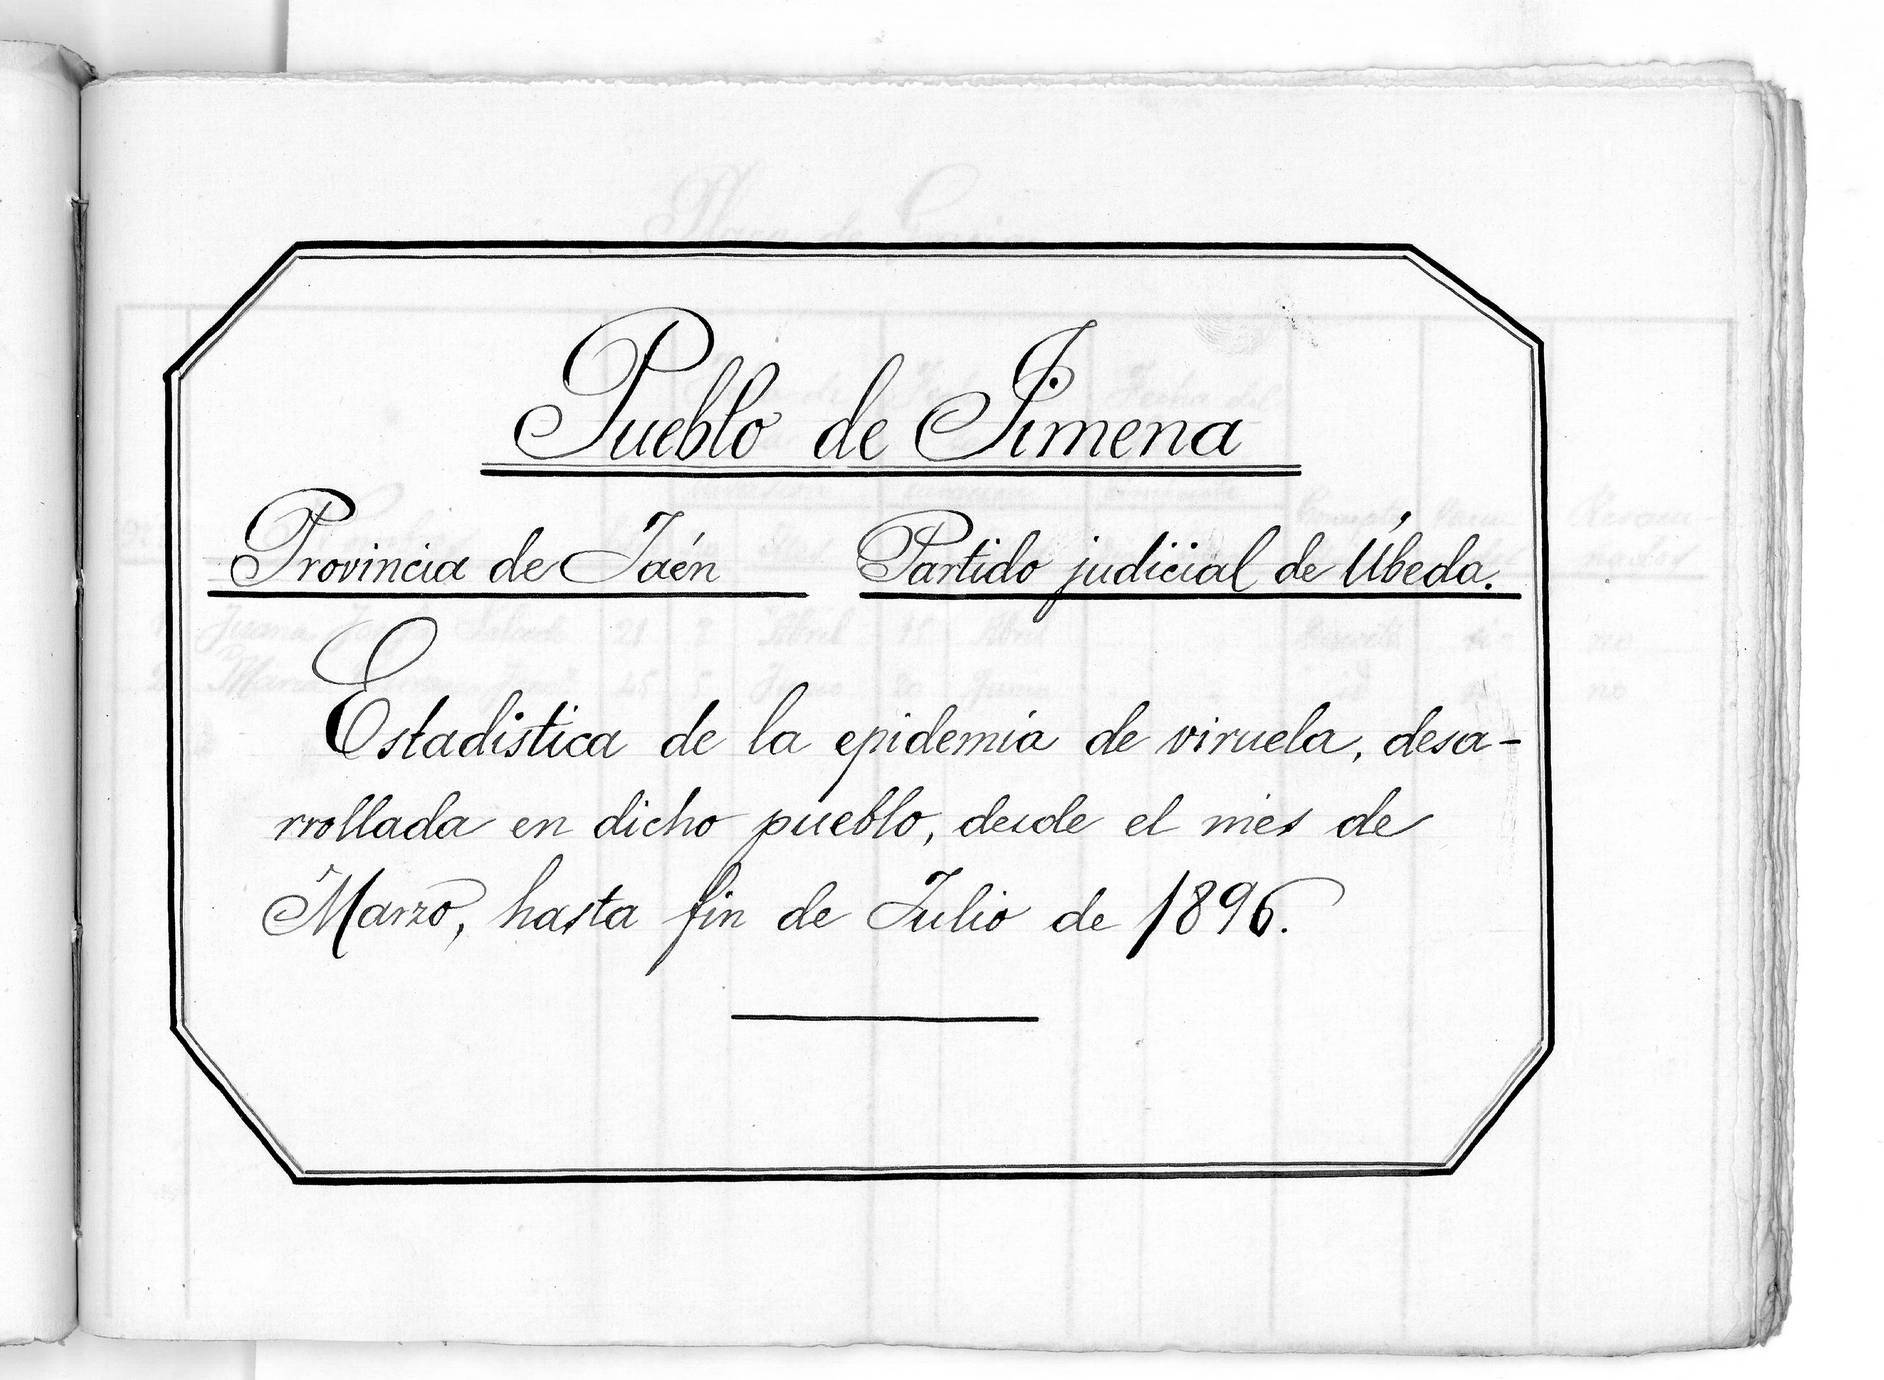 Pueblo de Jimena
Provincia de Jaén Partido judicial de Úbeda.
Estadistica de la epidemia de viruela, desa-
rrollada en dicho pueblo, desde el mes de
Marzo, hasta fin de Julio de 1896.